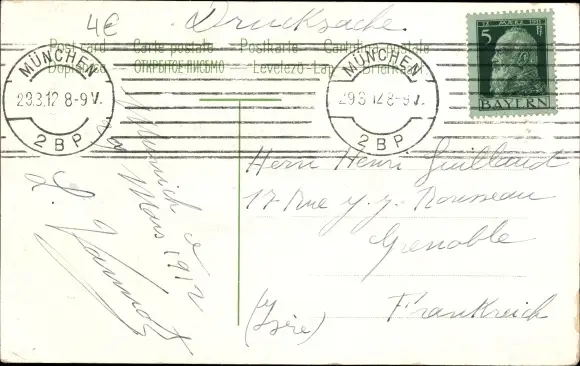 4€
Drucksache.
Postcard Carte postale Postkarte
ОТКРЫТОЕ ПИСЬМО Levelező-Lap
MÜNCHEN
29.3.12 8-9 V.
2 B P
MÜNCHEN
29.3.12 8-9 V.
2 B P
12. MÄRZ 1911
5
BAYERN
Herrn Henri Guillaud
17 Rue J. J. Rousseau
Grenoble
(Isère) Frankreich
Munich
Mars 1912
L.